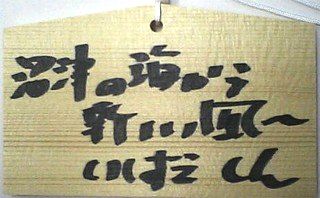 沼津の海から
新しい風〜
いはら しん